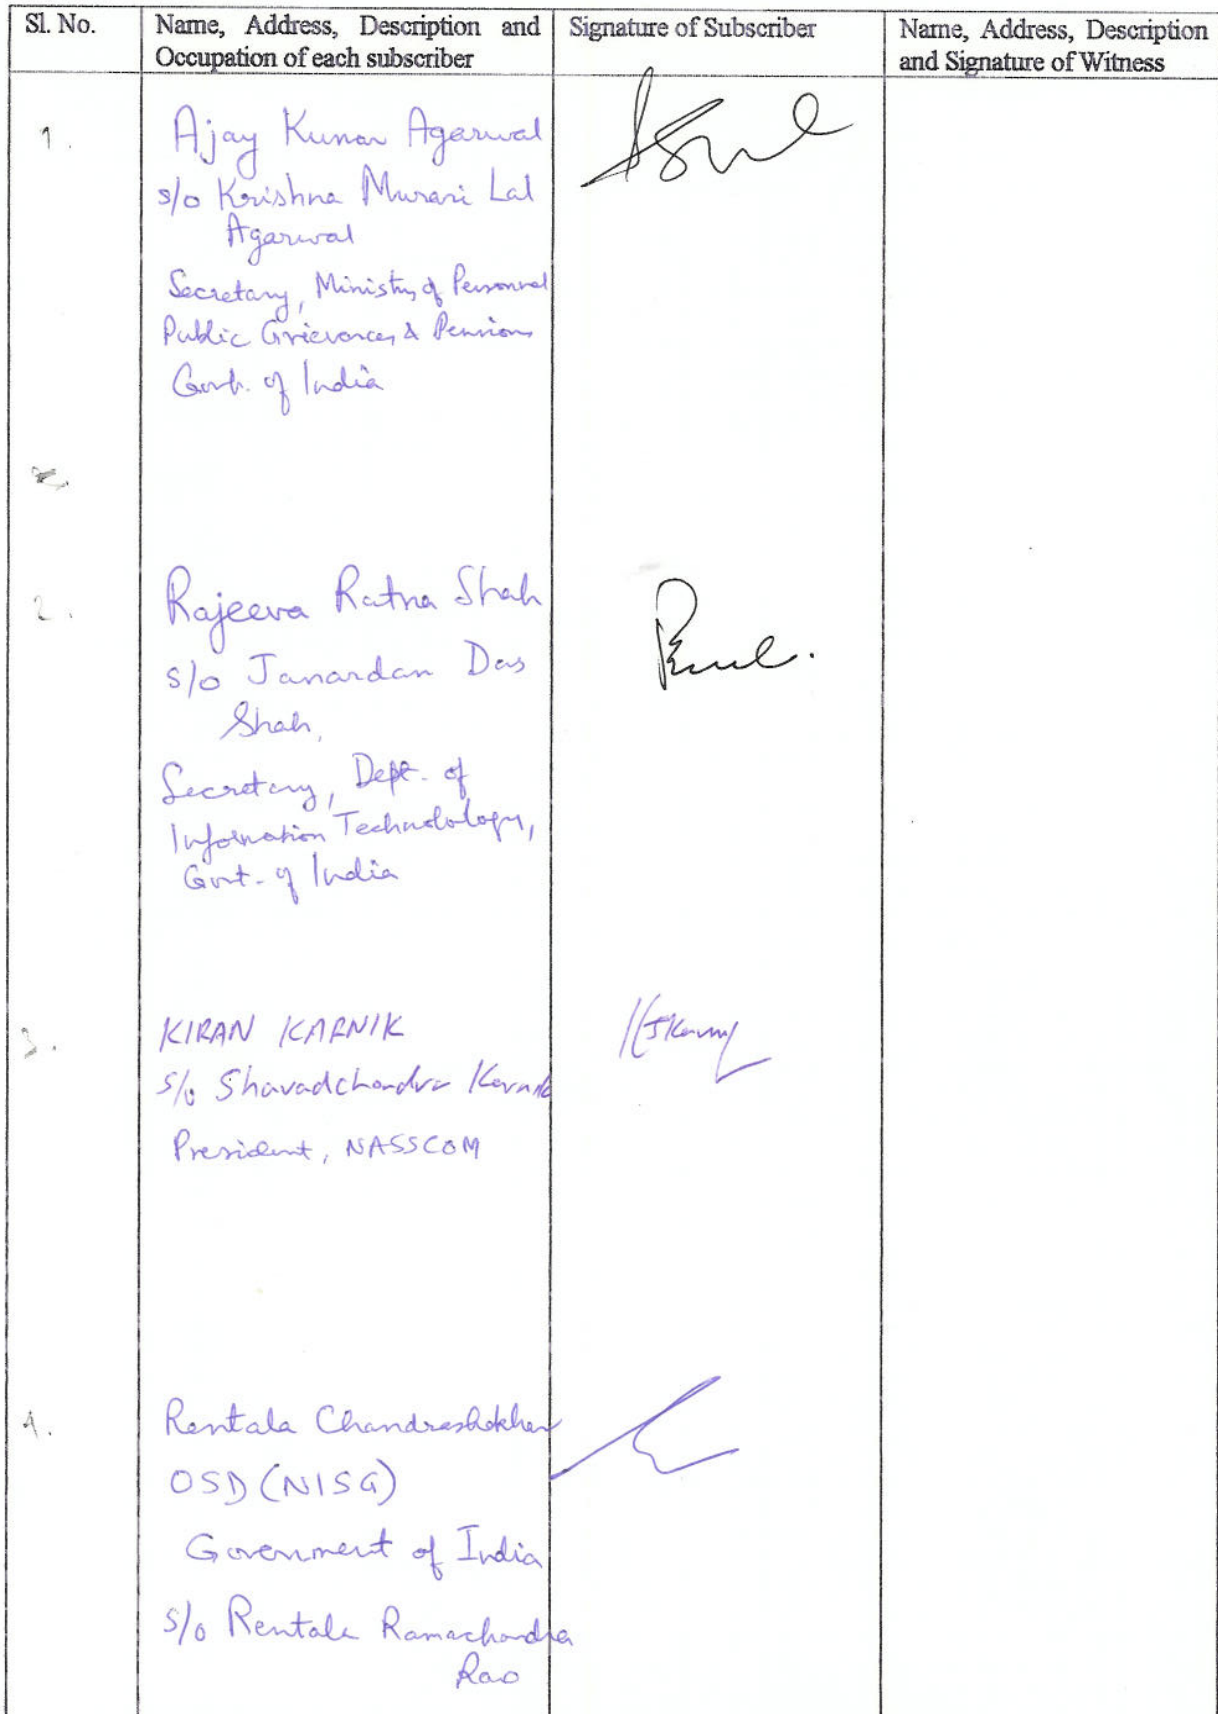 Sl. No.
Name, Address, Description and
Occupation of each subscriber
Signature of Subscriber
Name, Address, Description
and Signature of Witness
1.
Ajay Kumar Agarwal
s/o Krishna Murari Lal
Agarwal
Secretary, Ministry of Personnel
Public Grievances & Pensions
Govt. of India
2.
Rajeeva Ratna Shah
s/o Janardan Das
Shah,
Secretary, Dept. of
Information Technology,
Govt. of India
3.
KIRAN KARNIK
s/o Sharadchandra Karnik
President, NASSCOM
4.
Rentala Chandrashekhar
OSD (NISG)
Government of India
s/o Rentala Ramachandra
Rao